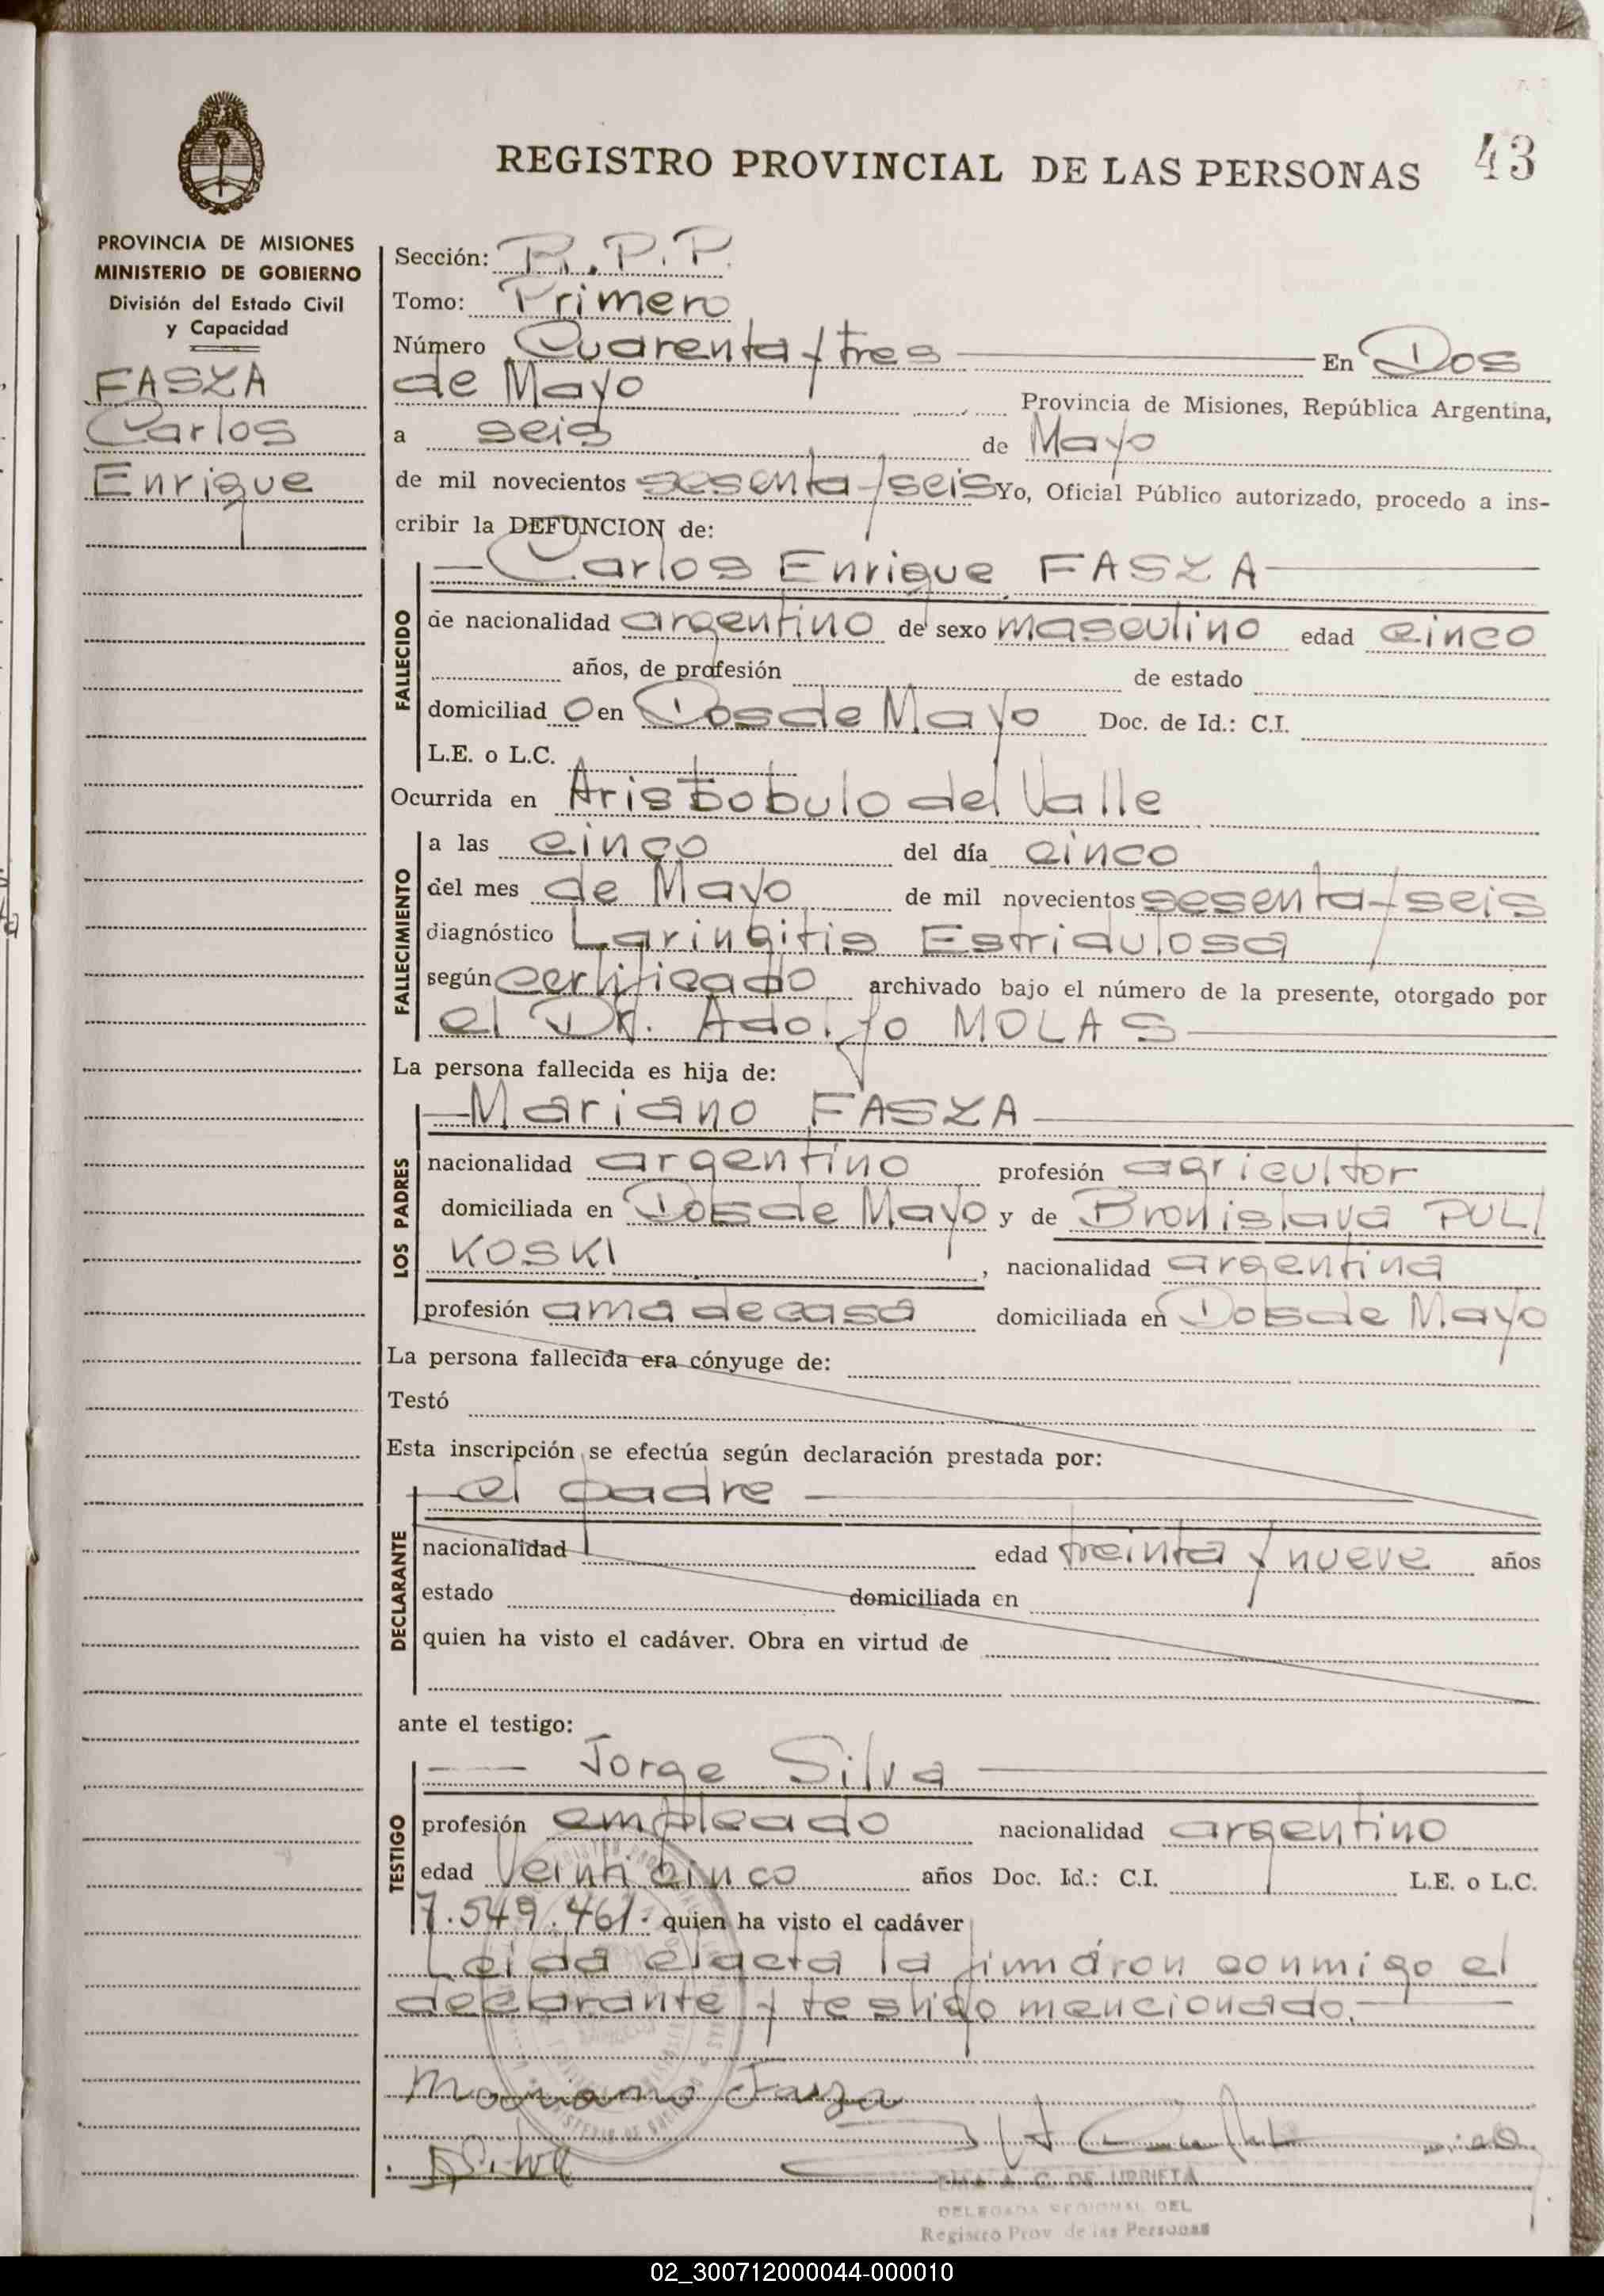 43
REGISTRO PROVINCIAL DE LAS PERSONAS
PROVINCIA DE MISIONES
MINISTERIO DE GOBIERNO
División del Estado Civil
y Capacidad
FASZA
Carlos
Enrique
Sección: R.P.P.
Tomo: Primero
Número Cuarenta y tres En Dos
de Mayo Provincia de Misiones, República Argentina,
a seis de Mayo
de mil novecientos sesenta y seis Yo, Oficial Público autorizado, procedo a ins-
cribir la DEFUNCION de:
Carlos Enrique FASZA
FALLECIDO
de nacionalidad argentino de sexo masculino edad cinco
años, de profesión de estado
domiciliad o en Dos de Mayo Doc. de Id.: C.I.
L.E. o L.C.
Ocurrida en Aristobulo del Valle
FALLECIMIENTO
a las cinco del día cinco
del mes de Mayo de mil novecientos sesenta y seis
diagnóstico Laringitis Estridulosa
según certificado archivado bajo el número de la presente, otorgado por
el Dr. Adolfo MOLAS
La persona fallecida es hija de:
Mariano FASZA
LOS PADRES
nacionalidad argentino profesión agricultor
domiciliada en Dos de Mayo y de Bronislava PULI
KOSKI , nacionalidad argentina
profesión ama de casa domiciliada en Dos de Mayo
La persona fallecida era cónyuge de:
Testó
Esta inscripción se efectúa según declaración prestada por:
el padre
DECLARANTE
nacionalidad edad treinta y nueve años
estado domiciliada en
quien ha visto el cadáver. Obra en virtud de
ante el testigo:
Jorge Silva
TESTIGO
profesión empleado nacionalidad argentino
edad Veinti cinco años Doc. Id.: C.I. L.E. o L.C.
7.549.461.- quien ha visto el cadáver
Leída el acta la firmáron conmigo el
declarante y testigo mencionado.
Mariano Fasza
JSilva
A. C. DE URRIETA
DELEGADA REGIONAL DEL
Registro Prov. de las Personas
02_300712000044-000010